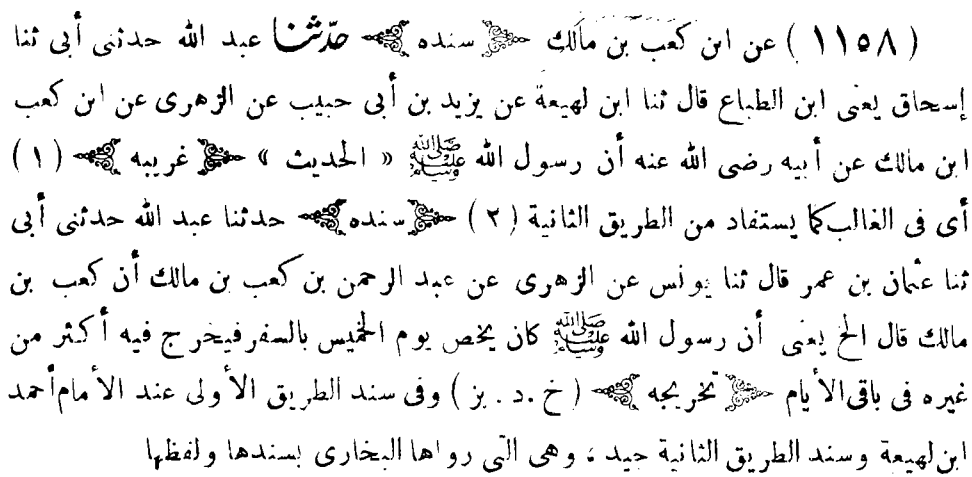 ( ١١٥٨ ) عن ابن كعب بن مالك ﴿ سنده ﴾ حدّثنا عبد الله حدثنى أبى ثنا
إسحاق يعنى ابن الطباع قال ثنا ابن لهيعة عن يزيد بن أبى حبيب عن الزهرى عن ابن كعب
ابن مالك عن أبيه رضى الله عنه أن رسول الله ﷺ « الحديث » ﴿ غريبه ﴾ ( ١ )
أى فى الغالب كما يستفاد من الطريق الثانية ( ٢ ) ﴿ سنده ﴾ حدثنا عبد الله حدثنى أبى
ثنا عثمان بن عمر قال ثنا يونس عن الزهرى عن عبد الرحمن بن كعب بن مالك أن كعب بن
مالك قال الخ يعنى أن رسول الله ﷺ كان يخص يوم الخميس بالسفر فيخرج فيه أكثر من
غيره فى باقى الأيام ﴿ تخريجه ﴾ ( خ . د . بز ) وفى سند الطريق الأولى عند الأمام أحمد
ابن لهيعة وسند الطريق الثانية جيد ، وهى التى رواها البخارى بسندها ولفظها